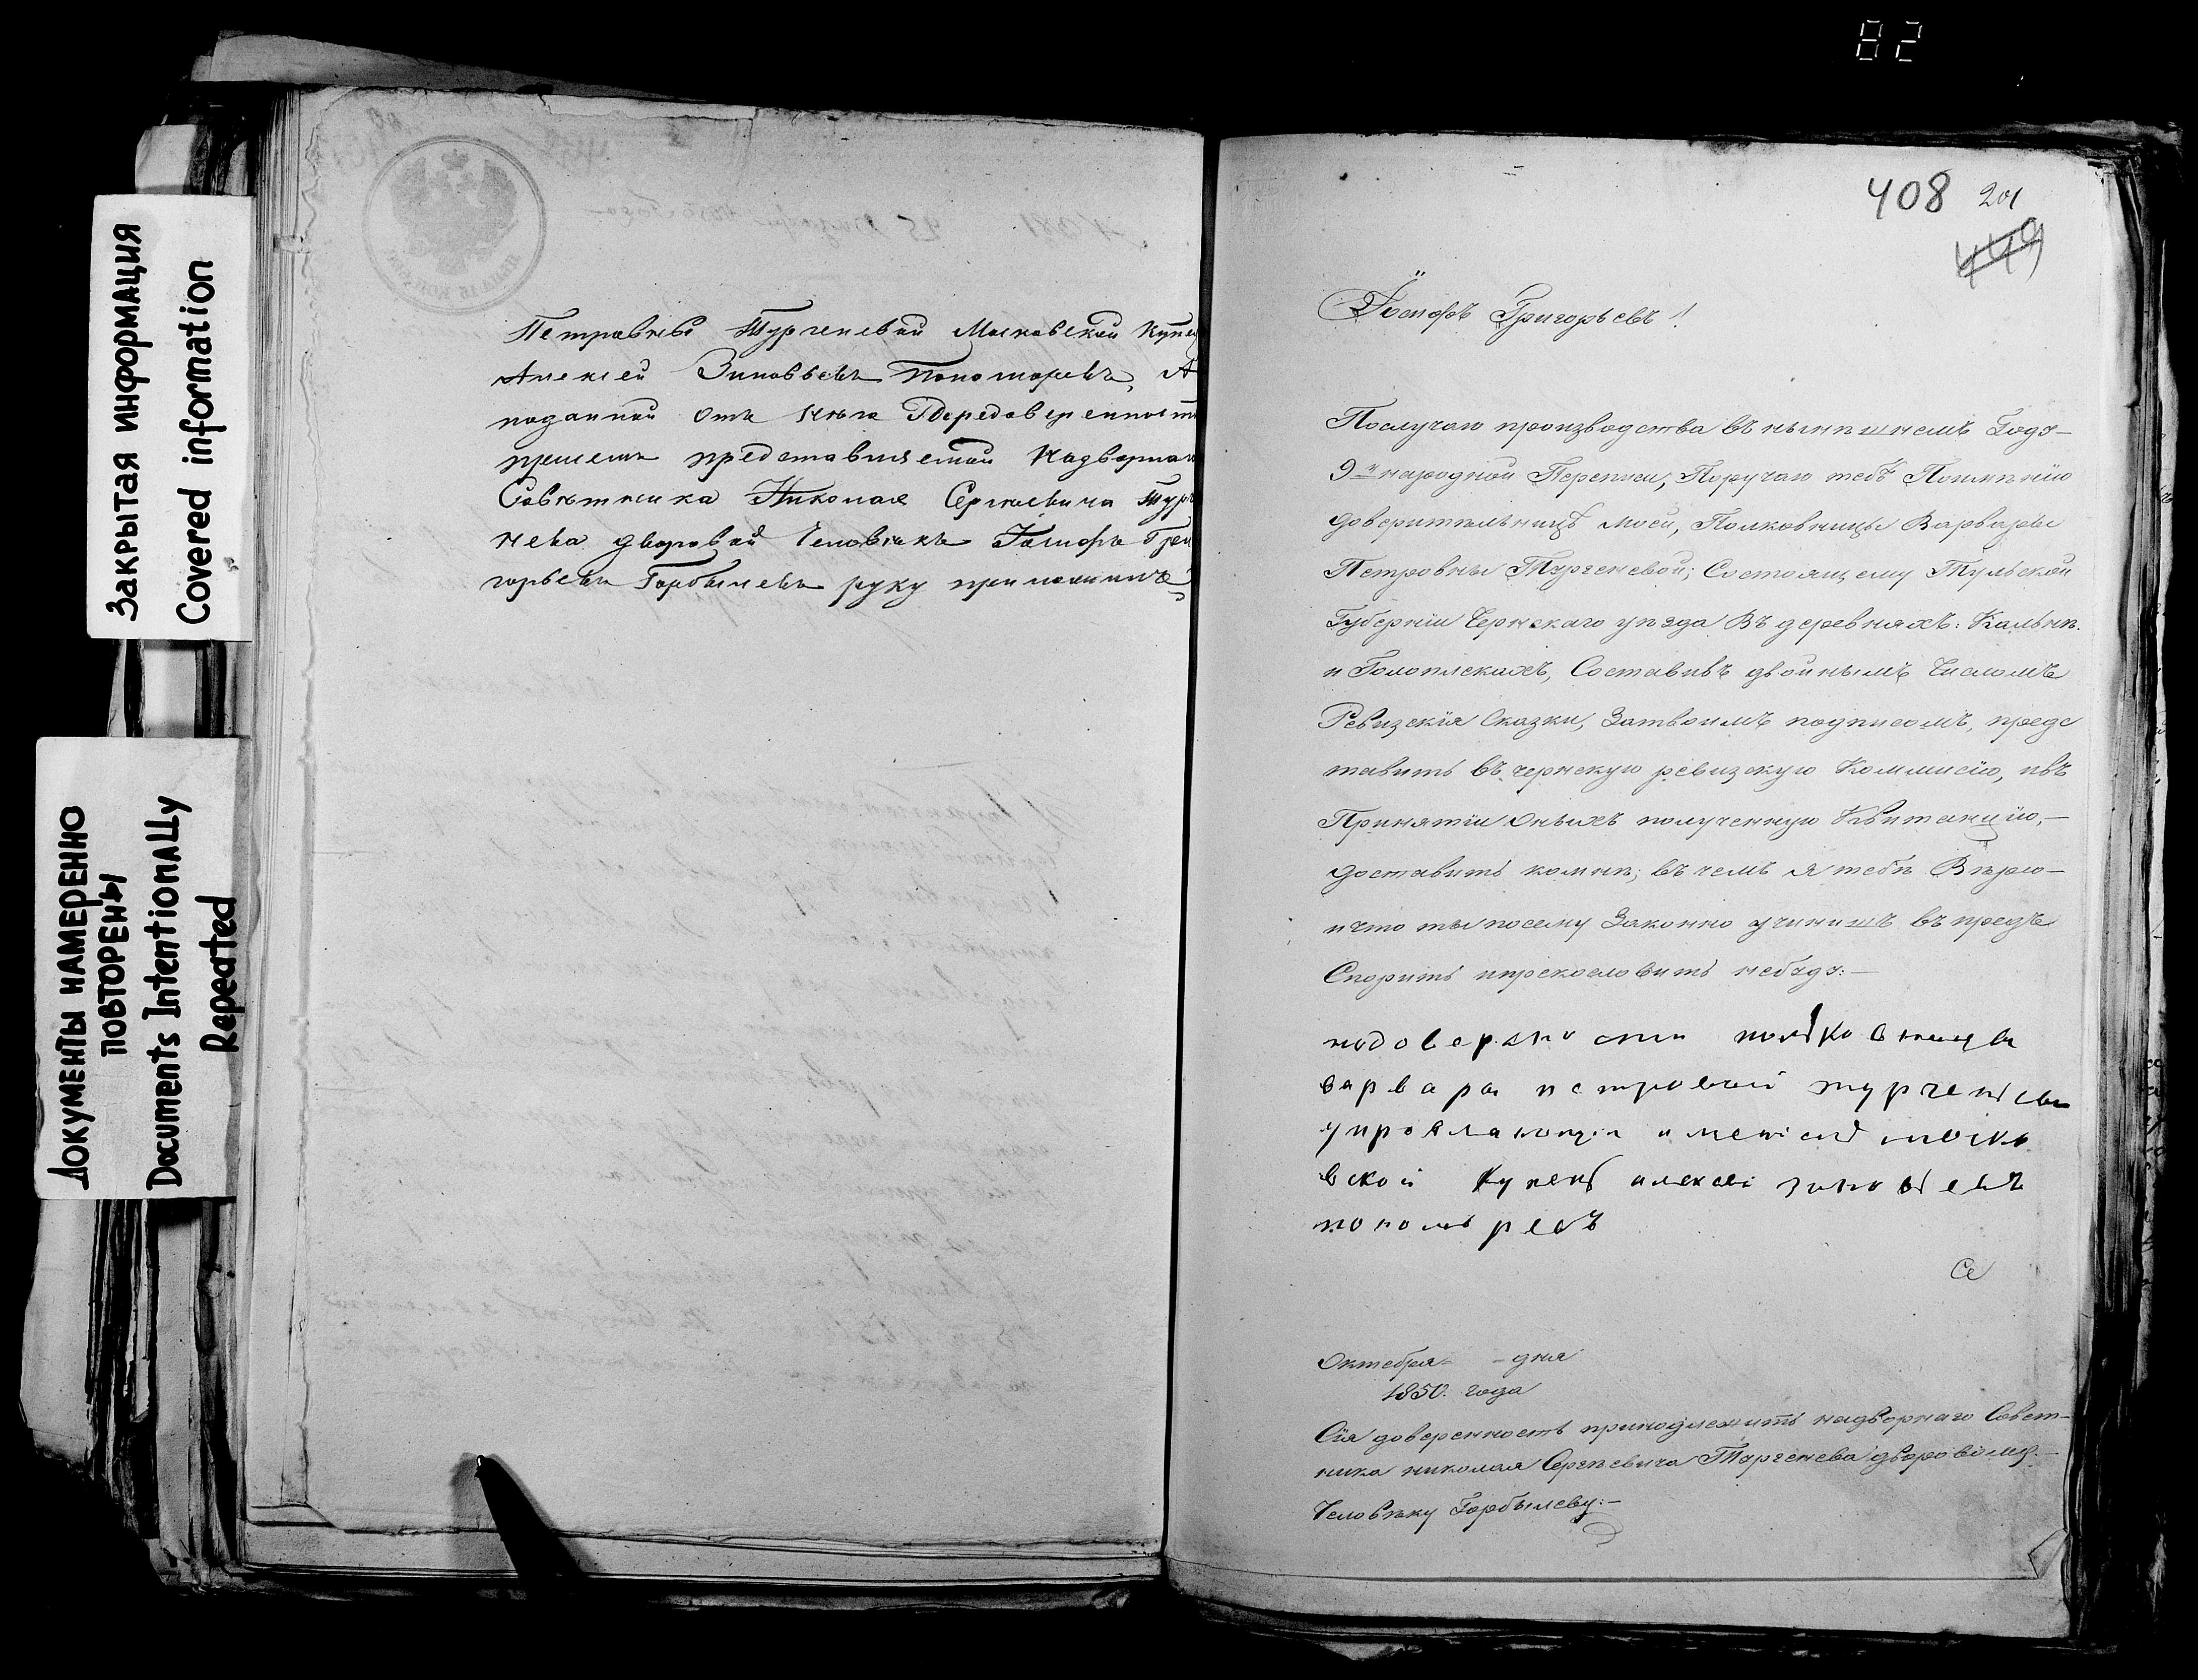 82
Закрытая информация
Covered information
Документы намеренно
повторены
Documents Intentionally
Repeated
Петровны Тургеневой Московской Купец
Алексей Зиновьевъ Пономаревъ, А
поданной отъ него Передоверенности
представляемой Надворнаго
Советника Николая Сергеевича Тург
нева дворовой Человекъ Іосифъ Гри
горьевъ Горбычевъ руку приложилъ
408 201
449
Іосифъ Григорьевъ!
Послучаю производства въ нынешнемъ Году
9й народной Переписи, Поручаю тебѣ Поимѣнію
доверительницы моей, Полковницы Варвары
Петровны Тургеневой; Состоящему Тульской
Губерніи Чернскаго уѣзда Въ деревняхъ: Кальнѣ
и Голоплекахъ, Составивъ двойнымъ Числомъ
Ревизскія Сказки, Затвоимъ подписомъ, предс
тавить въ чернскую ревизскую Коммисію, ивъ
Принятіи Оныхъ полученную Квитанцію,
доставить комнѣ; въ чемъ я тебѣ Вѣрю
ичто ты посему Законно учинишъ въ предь
Спорить ипрекословить небуду:
подоверености полковницы
варвары петровны тургеневы
управляющи имениемъ моско
вской купецъ алексеі зиновьевъ
понома ревъ
Октебря дня
1850. года
Сія доверенность принодлежитъ надворнаго Совет-
ника николая Сергѣевича Тургенева дворовому
Человѣку Горбылеву: